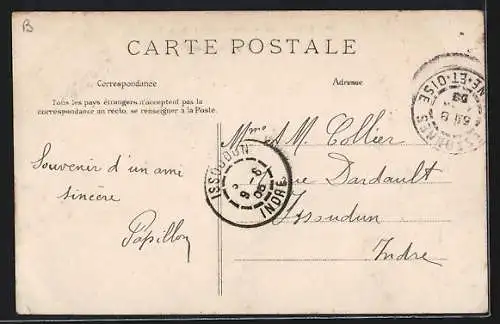 B
CARTE POSTALE
Correspondance
Adresse
Tous les pays étrangers n'acceptent pas la
correspondance au recto, se renseigner à la Poste
Souvenir d'un ami
sincère
Papillon
Mme A M. Collier
rue Dardault
Issoudun
Indre
ISSOUDUN
INDRE
NE-ET-OISE